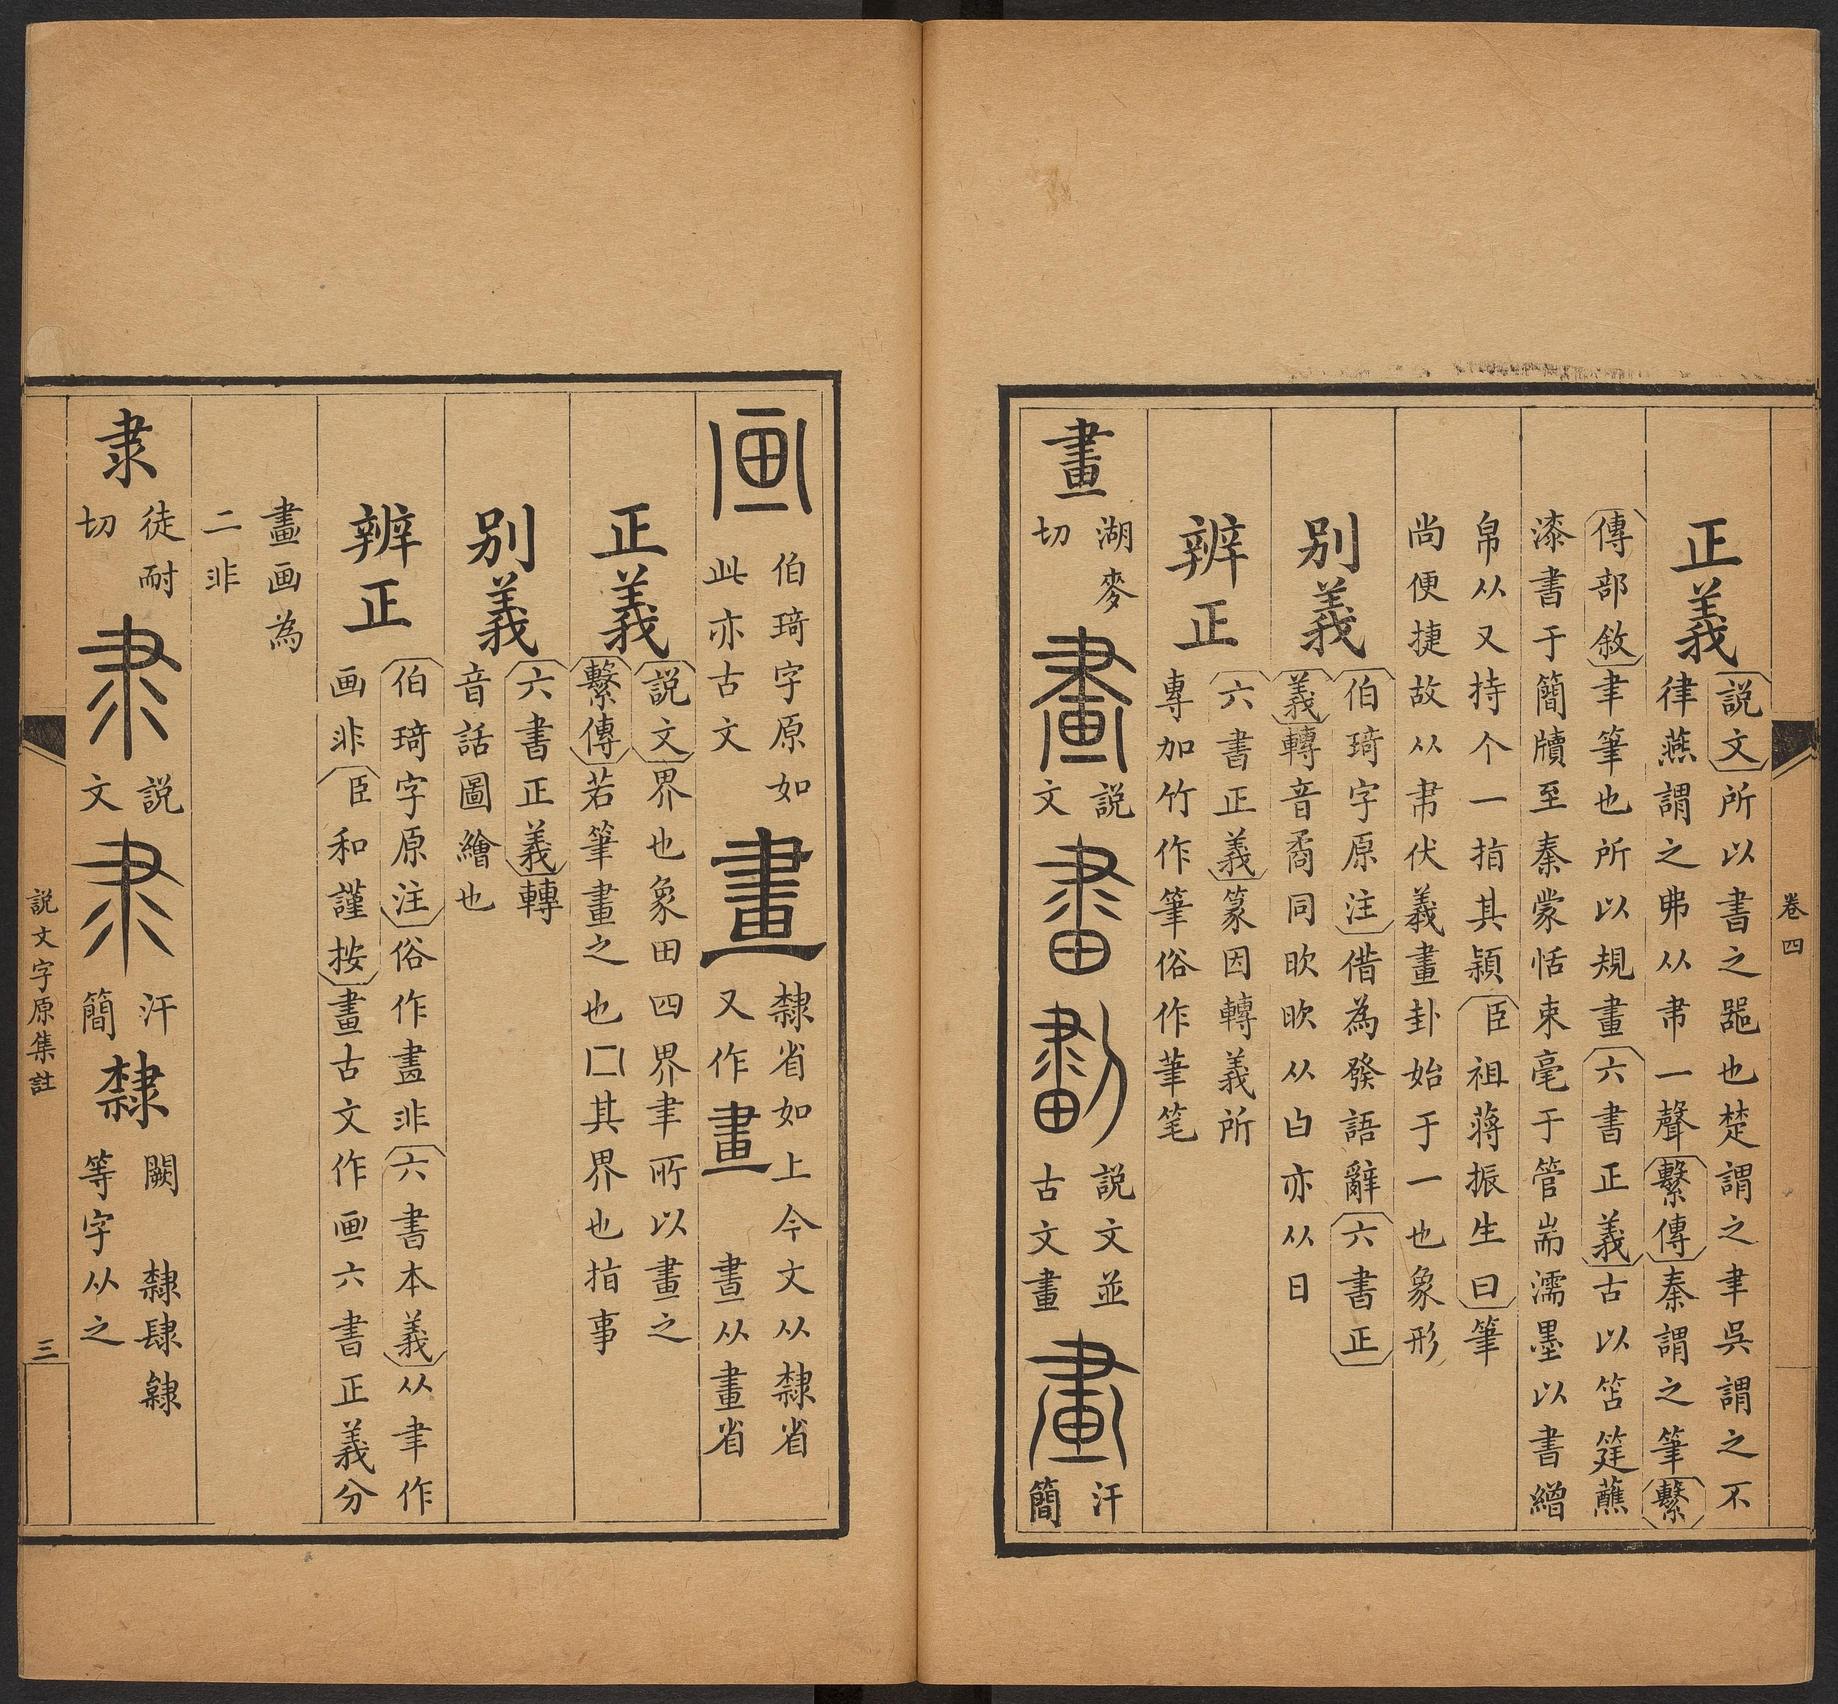 卷四
正義
説文所以書之器也楚謂之聿吳謂之不
律燕謂之弗从帇一聲繫傳秦謂之筆繫
傳部敘聿筆也所以規畫六書正義古以箁筳蘸
漆書于簡牘至秦蒙恬束毫于管耑濡墨以書繒
帛从又持个一指其穎臣祖蔣振生曰筆
尚便捷故从帇伏義畫卦始于一也象形
別義
伯琦字原注借為發語辭六書正
義轉音矞同昳昳从白亦从日
辨正
六書正義篆因轉義所
專加竹作筆俗作筆笔
畫
湖麥
切
畫
説
文
畫
劃
説文並
古文畫
畫
汗
簡
画
伯琦字原如
此亦古文
畫
隸省如上今文从隸省
又作畫
晝从畫省
正義
説文界也象田四界聿所以畫之
繫傳若筆畫之也囗其界也指事
別義
六書正義轉
音話圖繪也
辨正
伯琦字原注俗作畫非六書本義从聿作
画非臣和謹按畫古文作画六書正義分
畫画為
二非
隶
徒耐
切
隶
説
文
隶
汗
簡
隸
闕
隸肆䭆
等字从之
説文字原集註
三